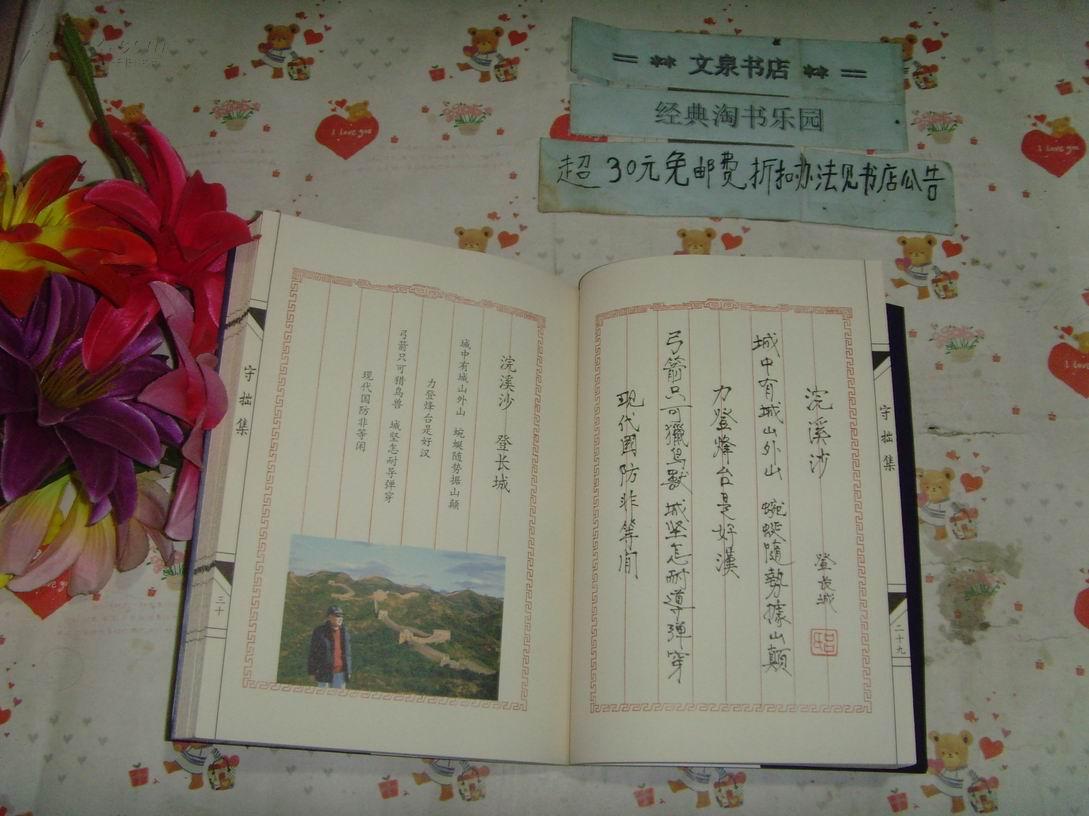 == ** 文泉书店 ** ==
经典淘书乐园
超30元免邮费折扣办法见书店公告
守拙集
二十九
浣溪沙
登长城
城中有城山外山 蜿蜒随势據山巔
力登烽台是好漢
弓箭只可獵鸟獸 城坚怎耐導弹穿
现代國防非等闲
守拙集
三十
浣溪沙 登长城
城中有城山外山 蜿蜒随势据山巅
力登烽台是好汉
弓箭只可猎鸟兽 城坚怎耐导弹穿
现代国防非等闲
I love you
I love you
I love you